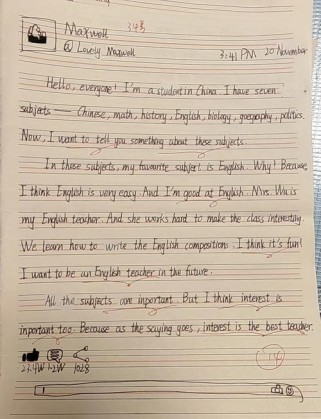 Maxwell 34号
@ Lovely Maxwell 3:41 PM 20 November
Hello, everyone! I'm a student in China. I have seven
subjects — Chinese, math, history, English, biology, geography, politics.
Now, I want to tell you something about these subjects.
In these subjects, my favourite subject is English. Why? Because
I think English is very easy. And I'm good at English. Mrs. Wu is
my English teacher. And she works hard to make the class interesting.
We learn how to write the English compositions. I think it's fun!
I want to be an English teacher in the future.
All the subjects are inportant. But I think interest is
inportant too. Because as the saying goes, interest is the best teacher.
14
23.4W 1.2W 1028